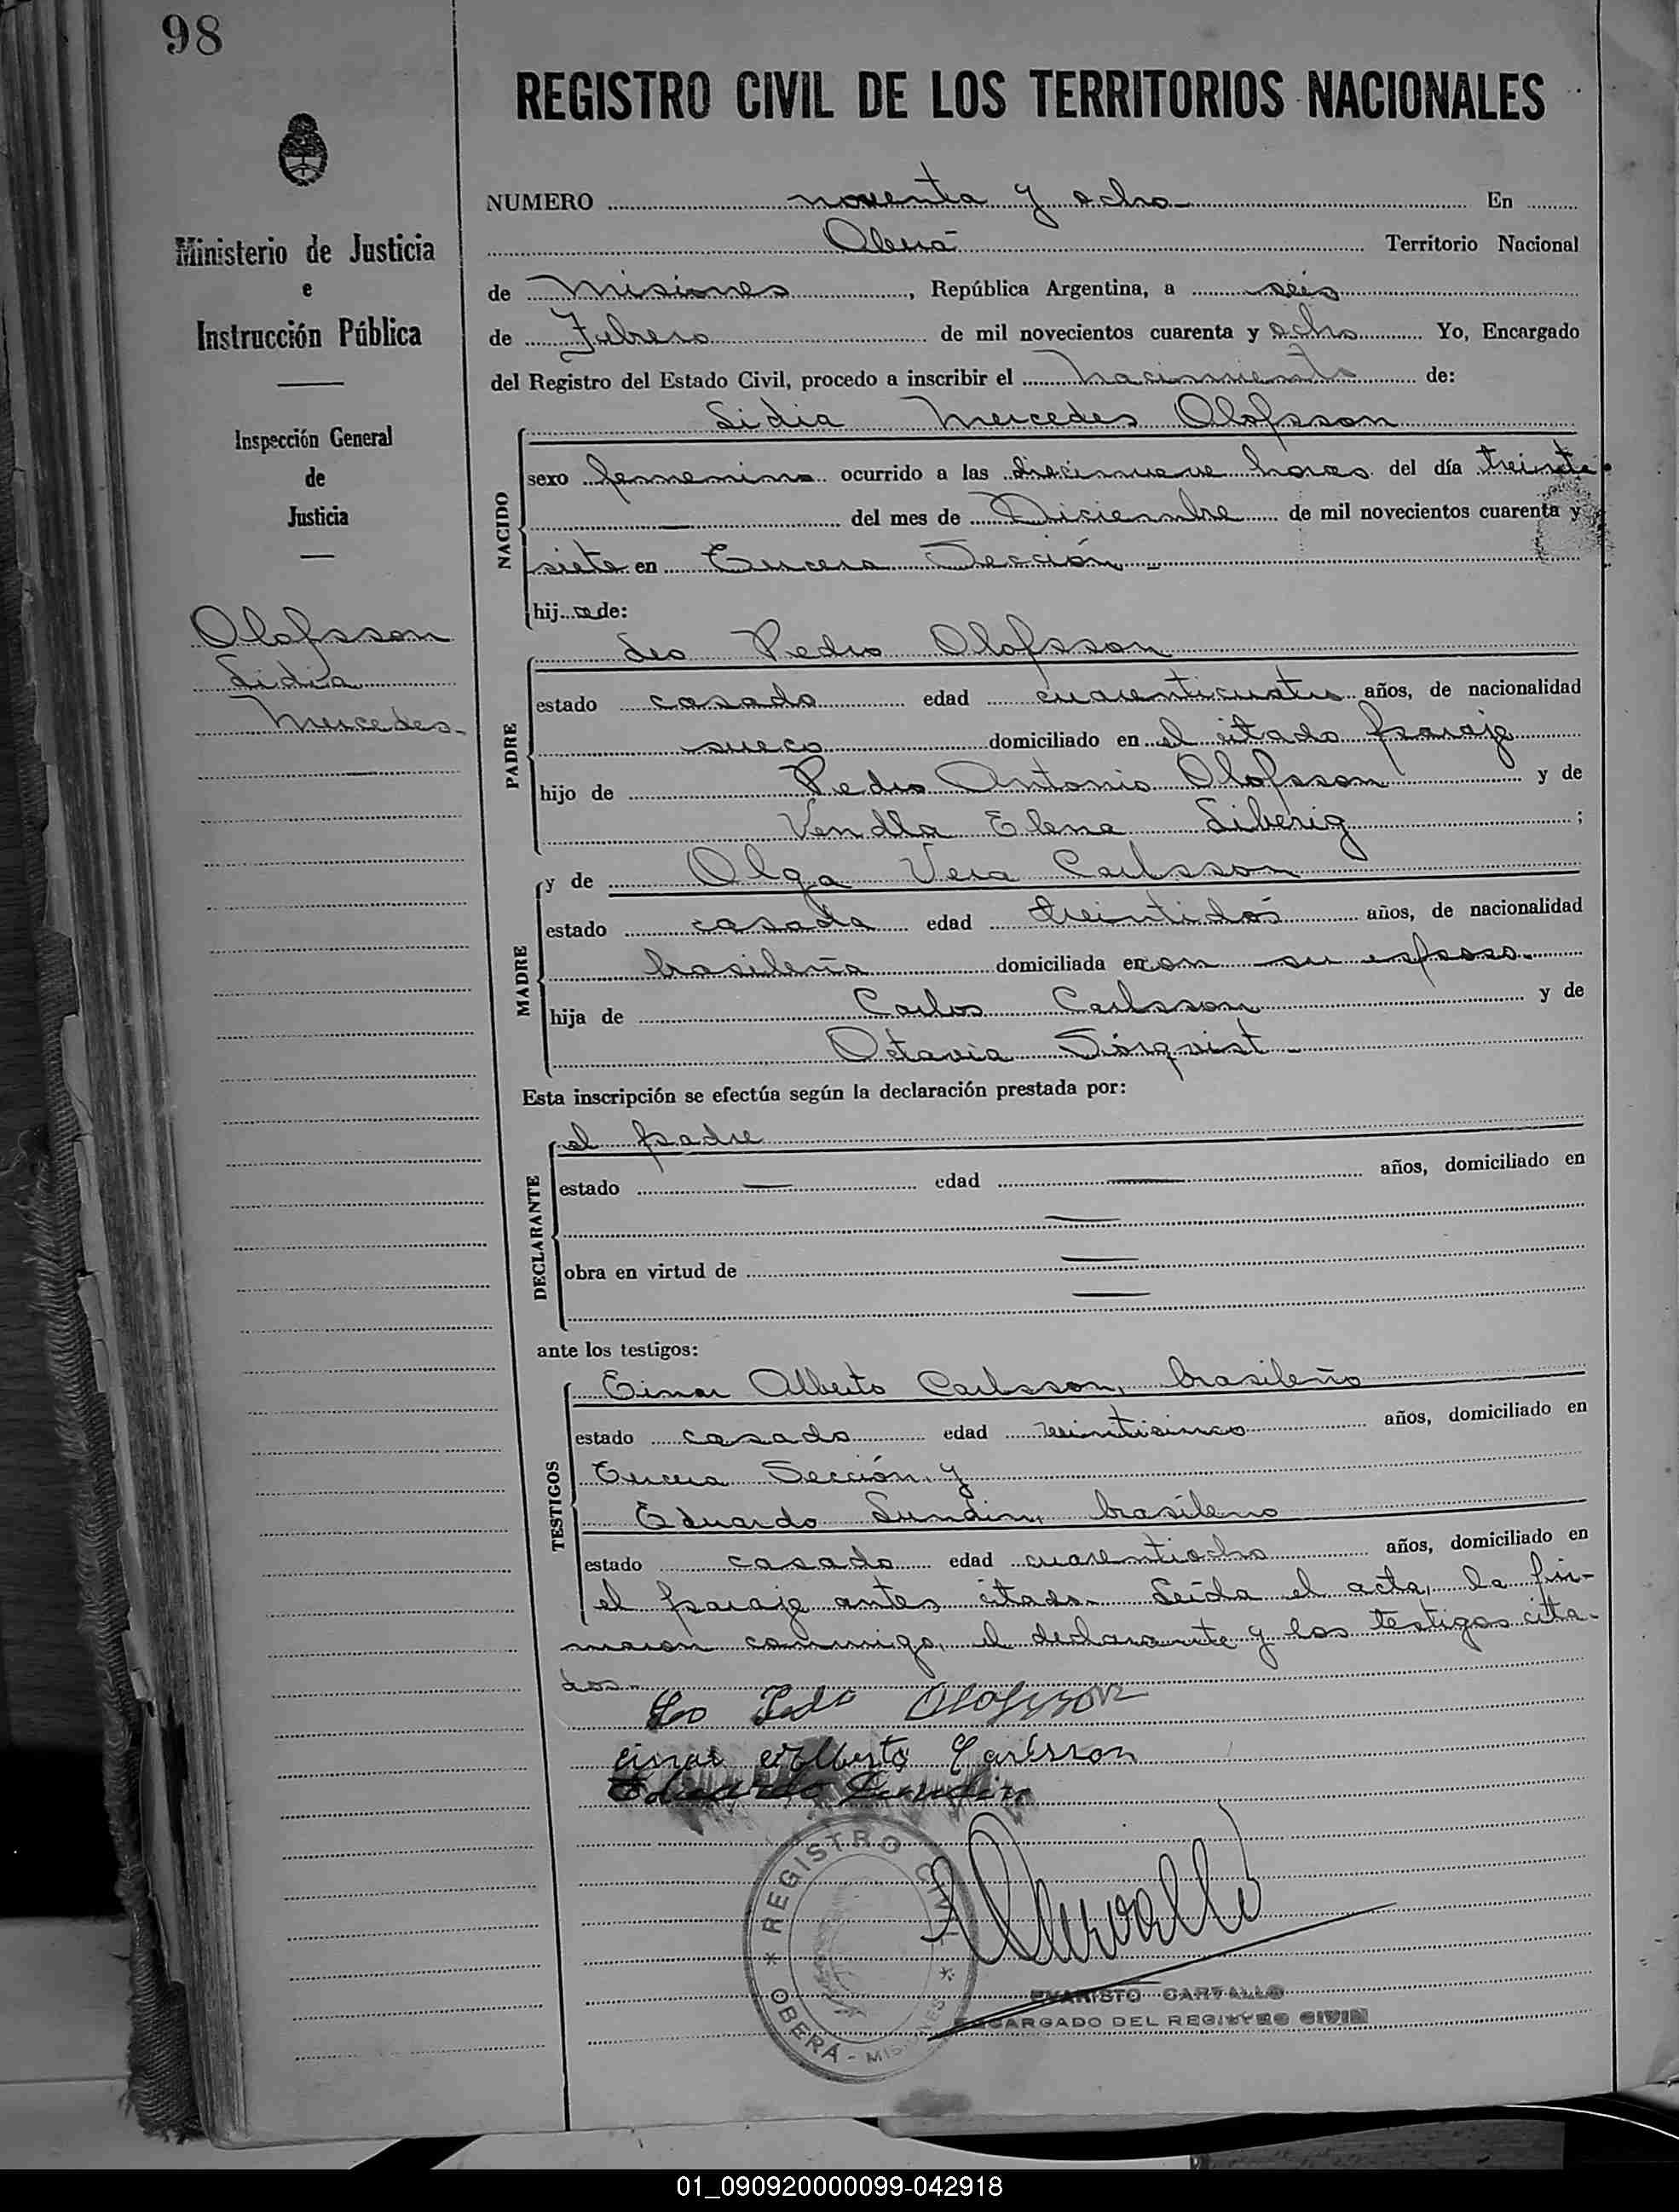 98
REGISTRO CIVIL DE LOS TERRITORIOS NACIONALES
Ministerio de Justicia
e
Instrucción Pública
Inspección General
de
Justicia
Olofsson
Lidia
Mercedes
NUMERO noventa y ocho En
Oberá Territorio Nacional
de Misiones, República Argentina, a seis
de Febrero de mil novecientos cuarenta y ocho Yo, Encargado
del Registro del Estado Civil, procedo a inscribir el nacimiento de:
Lidia Mercedes Olofsson
NACIDO
sexo femenino ocurrido a las diecinueve horas del día treinta
del mes de Diciembre de mil novecientos cuarenta y
siete en Tercera Sección
hij a de:
PADRE
Leo Pedro Olofsson
estado casado edad cuarenticuatro años, de nacionalidad
sueco domiciliado en el citado paraje
hijo de Pedro Antonio Olofsson y de
Vendla Elena Liberig;
MADRE
y de Olga Vera Carlsson
estado casada edad treintidós años, de nacionalidad
brasileña domiciliada en con su esposo
hija de Carlos Carlsson y de
Octavia Sörqvist
Esta inscripción se efectúa según la declaración prestada por:
DECLARANTE
el padre
estado — edad — años, domiciliado en
—
obra en virtud de —
—
ante los testigos:
TESTIGOS
Einar Alberto Carlsson, brasileño
estado casado edad veintisinco años, domiciliado en
Tercera Sección y
Eduardo Lundin, brasileno
estado casado edad cuarentiocho años, domiciliado en
el paraje antes citado. Leída el acta, la fir-
maron conmigo, el declarante y los testigos cita-
dos.
Leo Pedo Olofsson
einar Alberto Carlsson
Eduardo Lundin
* REGISTRO CIVIL * OBERÁ - MISIONES
EVARISTO CARVALLO
ENCARGADO DEL REGISTRO CIVIL
01_090920000099-042918